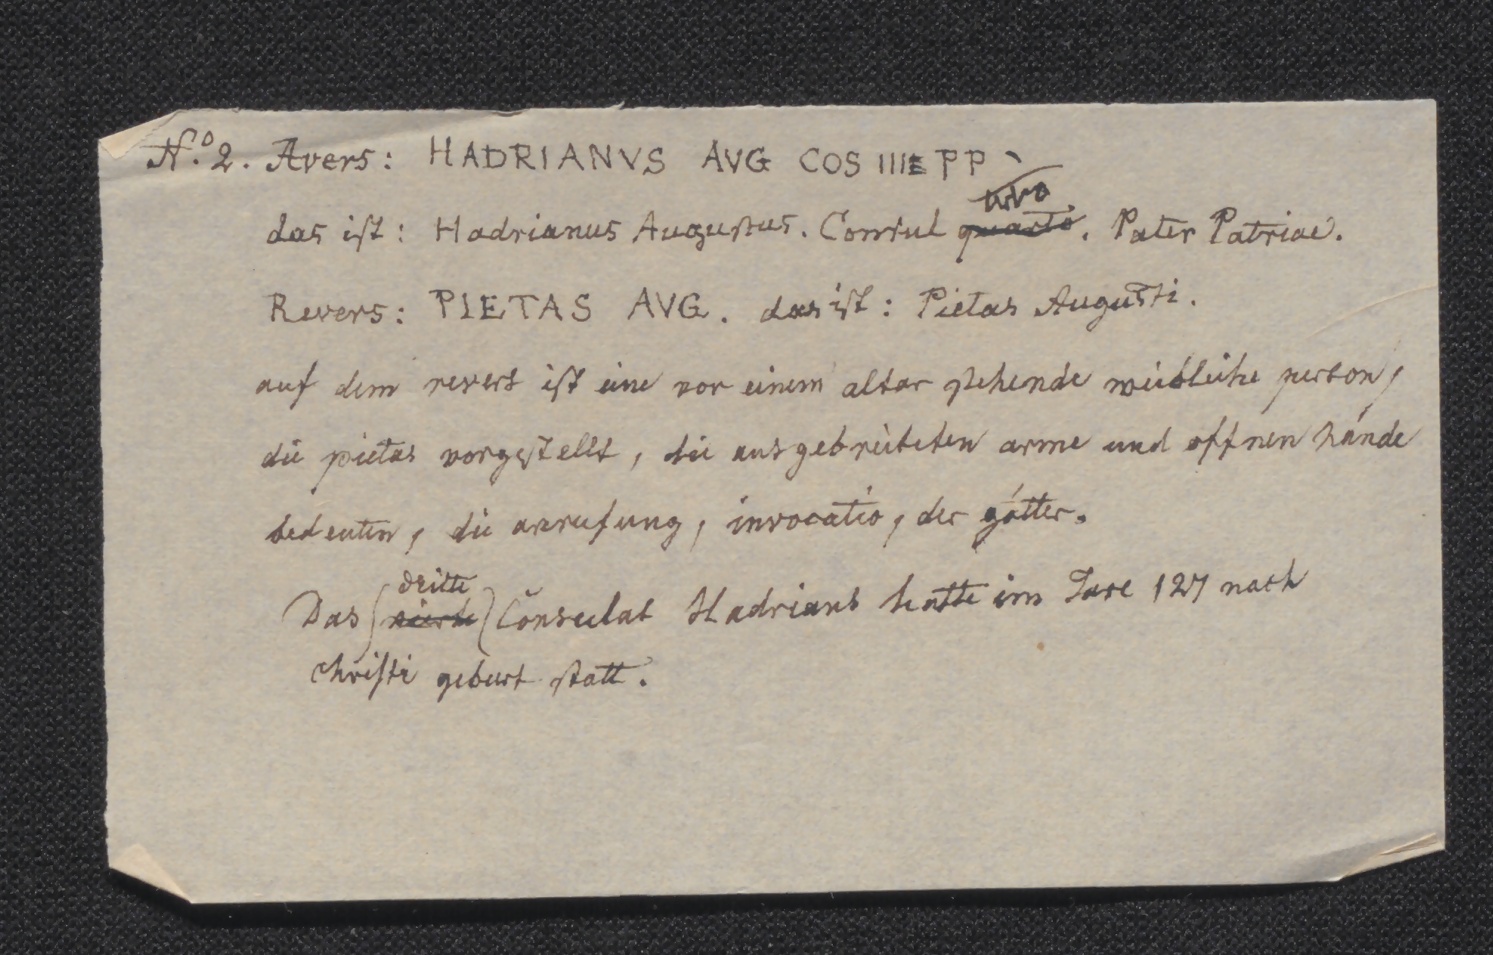 N.o 2. Avers: HADRIANVS AVG COS IIII PP
das ist: Hadrianus Augustus. Consul quarto. Pater Patriae.
Revers: PIETAS AVG. das ist: Pietas Augusti.
auf dem revers ist eine vor einem altar stehende weibliche person,
die pietas vorgestellt, die ausgebreiteten arme und offnen hände
bedeuten, die anrufung, invocatio, der götter.
dritte
Das (vierte) Consulat Hadrians hatte im Jare 127 nach
christi geburt statt.